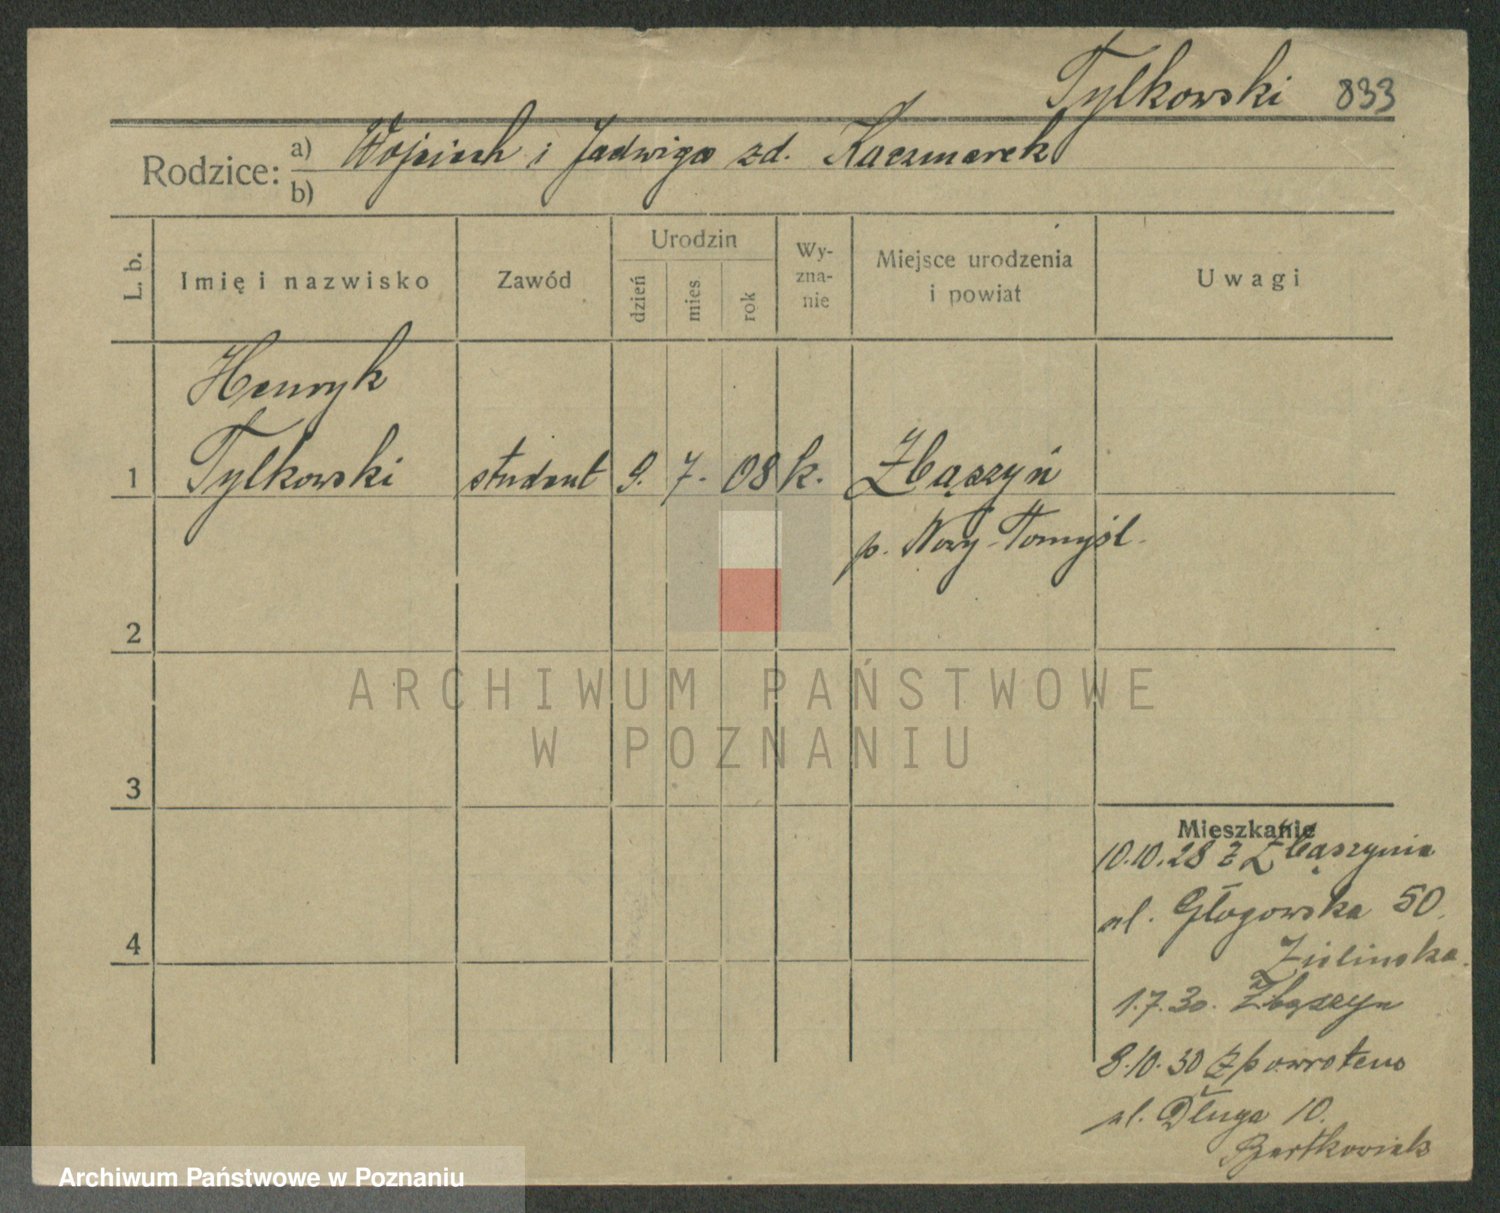 Tylkowski 833
Rodzice: a) Wojciech i Jadwiga zd. Kaczmarek
b)
L. b. Imię i nazwisko Zawód Urodzin dzień mies rok Wy-zna-nie Miejsce urodzenia i powiat Uwagi
Henryk
1 Tylkowski student 9. 7. 08 k. Zbąszyń
p. Nowy-Tomyśl.
2
ARCHIWUM PAŃSTWOWE
W POZNANIU
3
Mieszkanie
10.10.28 z Zbąszynia
ul. Głogowska 50.
4
Zielinska.
1.7.30. Zbąszyn
8.10.30 z powrotem
ul. Długa 10.
Bartkowiak
Archiwum Państwowe w Poznaniu